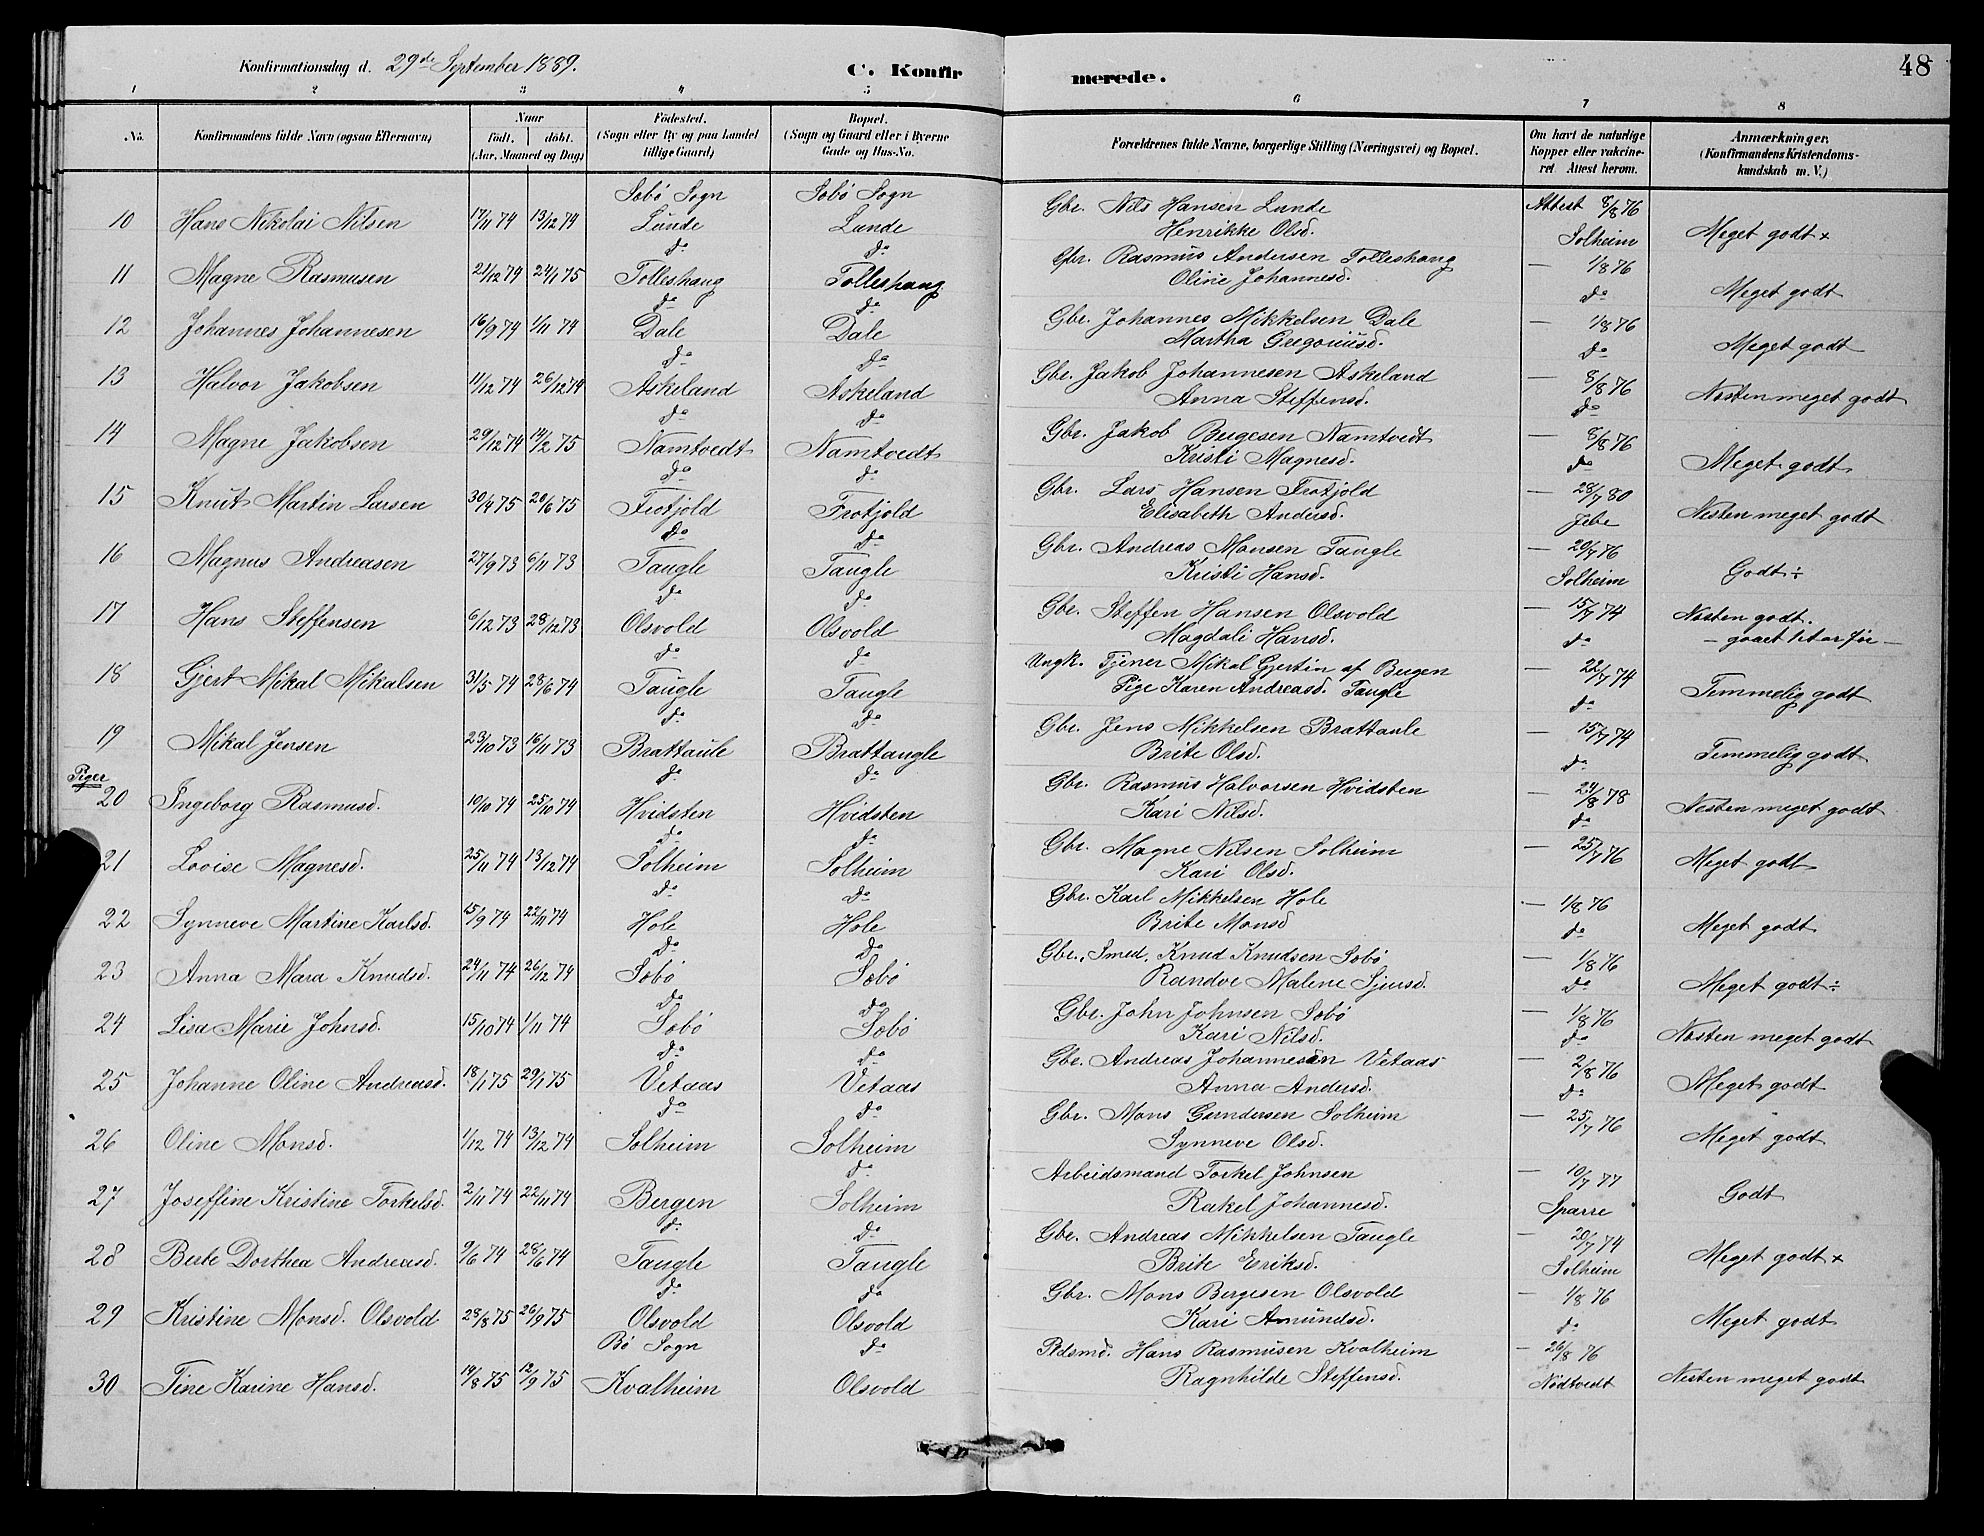 48
Konfirmationsdag d. 29de September 1889.
C. Konfirmerede.
1 2 3 4 5 6 7 8
No. Konfirmandens fulde Navn (ogsaa Efternavn)
Naar født. døbt. (Aar, Maaned og Dag)
Fødested. (Sogn eller By og paa Landet tillige Gaard)
Bopæl. (Sogn og Gaard eller i Byerne Gade og Hus-No.
Forældrenes fulde Navne, borgerlige Stilling (Næringsvei) og Bopæl.
Om havt de naturlige Kopper eller vakcineret Attest herom.
Anmærkninger. (Konfirmandens Kristendomskundskab m. V.)
Sæbø Sogn Sæbø Sogn Gbr. Nils Hansen Lunde Attest 8/8 76
10 Hans Nikolai Nilsen 17/11 74 13/12 74 Lunde Lunde Henrikke Olsd. Solheim Meget godt +
do do Gbr. Rasmus Andersen Tolleshaug — 1/8 76
11 Magne Rasmusen 21/12 74 24/1 75 Tolleshaug Tolleshaug Oline Johannesd. do Meget godt
do do Gbr. Johannes Mikkelsen Dale — 1/8 76
12 Johannes Johannesen 16/9 74 1/11 74 Dale Dale Martha Gregoriusd. do Meget godt
do do Gbr. Jakob Johannesen Askeland — 8/8 76
13 Halvor Jakobsen 11/12 74 26/12 74 Askeland Askeland Anna Steffensd. do Næsten meget godt
do do Gbr. Jakob Børgesen Namtvedt — 8/8 76
14 Magne Jakobsen 29/12 74 14/2 75 Namtvedt Namtvedt Kristi Magnesd. do Meget godt
do do Gbr. Lars Hansen Frotjold — 28/7 80
15 Knut Martin Larsen 30/4 75 20/6 75 Frotjold Frotjold Elisabeth Andersd. Jebe Næsten meget godt
do do Gbr. Andreas Monsen Taugle — 20/7 76
16 Magnus Andreasen 27/9 73 6/11 73 Taugle Taugle Kristi Hansd. Solheim Godt ÷
do do Gbr. Steffen Hansen Olsvold — 15/7 74 Næsten godt.
17 Hans Steffensen 6/12 73 28/12 73 Olsvold Olsvold Magdali Hansd. do — gaaet 1 Aar før —
do do Ungk. Tjener Mikal Gjertin af Bergen — 22/7 74
18 Gjert Mikal Mikalsen 31/5 74 28/6 74 Taugle Taugle Pige Karen Andreasd. Taugle do Temmelig godt
do do Gbr. Jens Mikkelsen Brattaule — 15/7 74
19 Mikal Jensen 23/10 73 16/11 73 Brattaule Brattaugle Brite Olsd. do Temmelig godt
Piger do do Gbr. Rasmus Halvorsen Hvidsten — 24/8 78
20 Ingeborg Rasmusd. 10/10 74 25/10 74 Hvidsten Hvidsten Kari Nilsd. do Næsten meget godt
do do Gbr. Magne Nilsen Solheim — 25/7 76
21 Lovise Magnesd. 25/11 74 13/12 74 Solheim Solheim Kari Olsd. Meget godt
do do Gbr. Karl Mikkelsen Hole — 1/8 76
22 Synneve Martine Karlsd. 15/9 74 22/11 74 Hole Hole Brite Monsd do Meget godt
do do Gbr., Smed, Knud Knudsen Sæbø — 1/8 76
23 Anna Mara Knudsd. 24/11 74 26/12 74 Sæbø Sæbø Randve Malene Sjursd. do Meget godt ÷
do do Gbr. John Johnsen Sæbø — 1/8 76
24 Lisa Marie Johnsd. 15/10 74 1/11 74 Sæbø Sæbø Kari Nilsd. do Næsten meget godt
do do Gbr. Andreas Johannesen Vetaas — 2/8 76
25 Johanne Oline Andreasd. 18/1 75 29/1 75 Vetaas Vetaas Anna Andersd. do Meget godt
do do Gbr. Mons Solheim — 25/7 76
26 Oline Monsd. 1/12 74 13/12 74 Solheim Solheim Synneve Olsd. Meget godt
do Arbeidsmand Torkel Johnsen — 10/7 77
27 Joseffine Kristine Torkelsd. 2/11 74 22/11 74 Bergen Solheim Rakel Johannesd. Sparre Godt
do do Gbr. Andreas Mikkelsen Taugle — 20/7 74
28 Berte Dorthea Andreasd. 9/6 74 28/6 74 Taugle Taugle Brite Eriksd. Solheim Meget godt +
do do Gbr. Mons Bergesen Olsvold — 1/8 76
29 Kristine Monsd. Olsvold 28/8 75 26/9 75 Olsvold Olsvold Kari Amundsd. do Meget godt
Bø Sogn do Pdsmd. Hans Rasmusen Kvalheim — 26/8 76
30 Tine Karine Hansd. 19/8 75 12/9 75 Kvalheim Olsvold Ragnhilde Steffensd. Nødtvedt Næsten meget godt